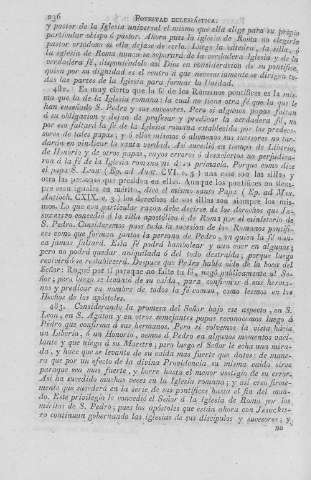 236 POTESTAD ECLESIÁSTICA.
y pastor de la Iglesia universal el mismo que ella elige para su propio
particular obispo ó pastor. Ahora pues la iglesia de Roma no elegiria
pastor ortodoxo si ella dejase de serlo. Luego la cátedra, la silla, ó
la iglesia de Roma nunca se separará de la verdadera Iglesia y de la
verdadera fé, disponiéndolo así Dios en consideracion de su pontífice,
quien por su dignidad es el centro á que necesariamente se dirigen to-
das las partes de la Iglesia para formar la unidad.
482. Es muy cierto que la fé de los Romanos pontífices es la mis-
ma que la de la Iglesia romana: la cual no tiene otra fé que la que le
han enseñado S. Pedro y sus sucesores. Pero si algunos papas faltan
á su obligacion y dejan de profesar y predicar la verdadera fé, no
por eso faltará la fé de la Iglesia romana establecida por los predece-
sores de tales papas; y ó ellos mismos ó algunos sus sucesores no tar-
darán en vindicar la santa verdad. Así sucedió en tiempo de Liberio,
de Honorio y de otros papas, cuyos errores ó desaciertos no perjudica-
ron á la fé de la Iglesia romana ni á su primacía. Porque como dice
el papa S. Leon (Ep. ad Anat. CVI. c. 5) una cosa son las sillas, y
otra las personas que presiden en ellas. Aunque los pontífices no siem-
pre sean iguales en mérito, dice el mismo santo Papa (Ep. ad Max.
Antioch. CXIX. c. 3) los derechos de sus sillas son siempre los mis-
mos. Lo que con particular razon debe decirse de los derechos que Je-
sucristo concedió á la silla apostólica ó de Roma por el ministerio de
S. Pedro. Consideremos pues toda la sucesion de los Romanos pontífi-
ces como que forman juntos la persona de Pedro, en quien la fé nun-
ca jamás faltará. Esta fé podrá bambolear y aun caer en algunos;
pero no podrá quedar aniquilada ó del todo destruida, porque luego
revivirá ó se restablecerá. Despues que Pedro habia oido de la boca del
Señor: Rogué por tí paraque no falte tu fé, negó públicamente al Se-
ñor; pero luego se levantó de su caida, para confirmar á sus herma-
nos y predicar en nombre de todos la fé comun, como leemos en los
Hechos de los apóstoles.
483. Considerando la promesa del Señor bajo ese aspecto, en S.
Leon, en S. Agaton y en otros semejantes papas reconocemos luego á
Pedro que confirma á sus hermanos. Pero si volvemos la vista hácia
un Liberio, ó un Honorio, vemos á Pedro en algunos momentos vaci-
lante y que niega á su Maestro; pero luego el Señor le echa una mira-
da, y hace que se levante de su caida mas fuerte que antes: de mane-
ra que por un efecto de la divina Providencia su misma caida sirve
paraque sea mas fuerte, y borre hasta el menor vestigio de su error.
Así ha sucedido muchas veces en la Iglesia romana; y así creo firme-
mente que sucederá en la serie de sus pontífices hasta el fin del mun-
do. Este privilegio le concedió el Señor á la Iglesia de Roma por los
méritos de S. Pedro; pues los apóstoles que están ahora con Jesucris-
to continuan gobernando las iglesias de sus discípulos y sucesores; y
no